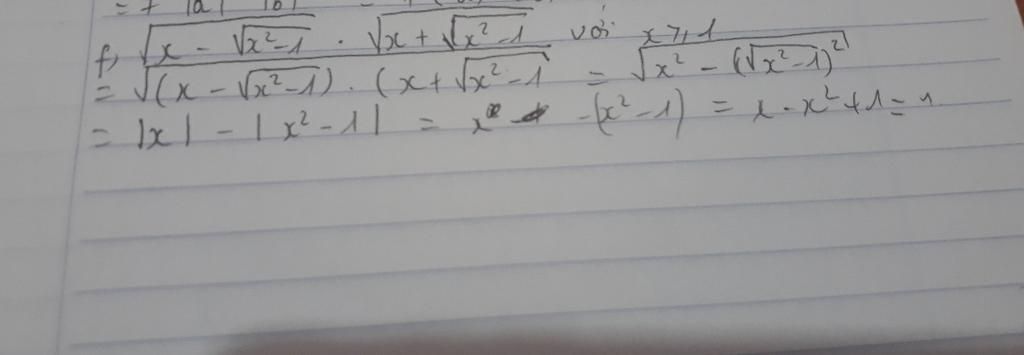 = 7 |a| |b| =
f, √(x - √(x²-1)) . √(x + √(x²-1)) với x ≥ 1
= √((x - √(x²-1)) . (x + √(x²-1)) = √(x² - (√(x²-1))²)
= |x| - | x² - 1 | = x - (x² - 1) = x - x² + 1 = 1